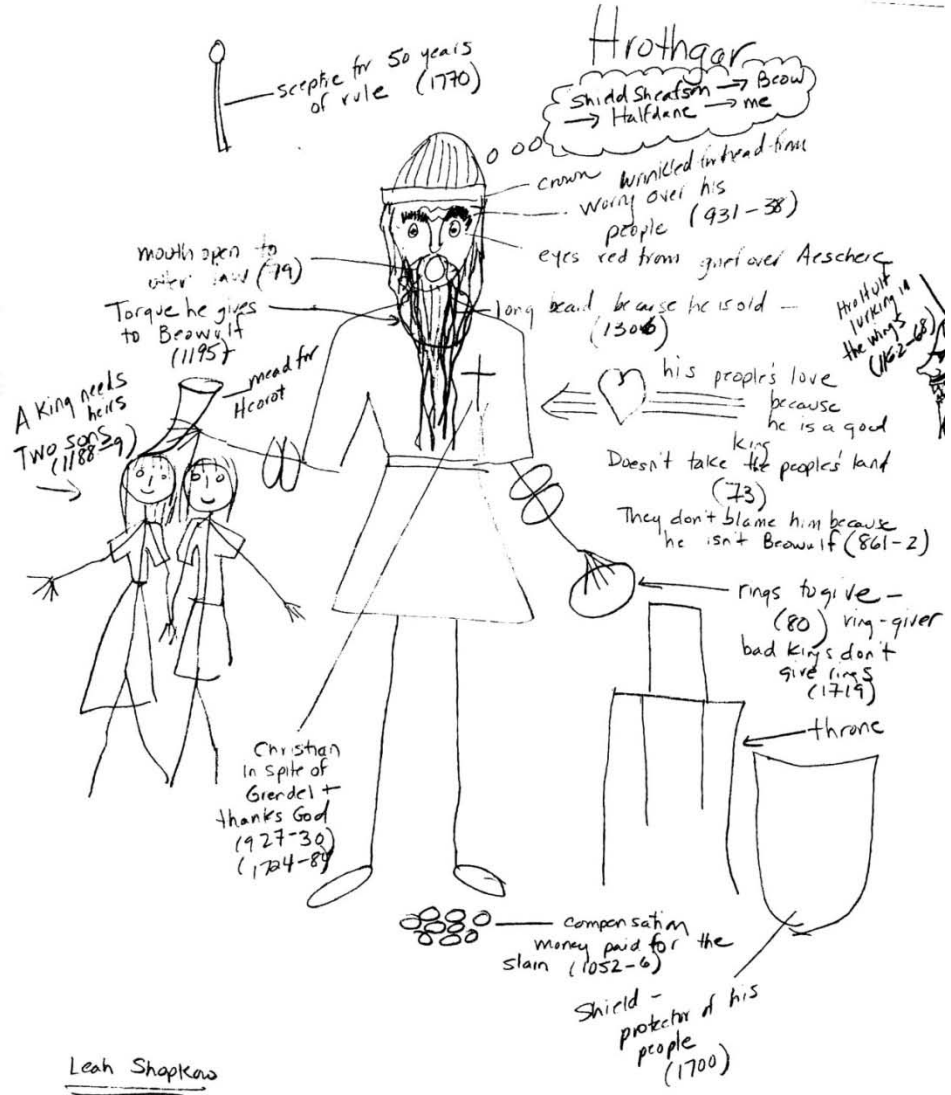 Hrothgar
Shield Sheafson → Beow
→ Halfdane → me
sceptre for 50 years
of rule (1770)
crown
wrinkled forhead from
worry over his
people (931-38)
eyes red from grief over Aeschere
mouth open to
utter law (79)
Torque he gives
to Beowulf
(1195)
long beard because he is old —
(1306)
Hrothulf
lurking in
the wings
(1162-68)
mead for
Heorot
A King needs
heirs
Two sons
(1188-9)
his people's love
because
he is a good
king
Doesn't take the people's land
(73)
They don't blame him because
he isn't Beowulf (861-2)
rings to give —
(80) ring-giver
bad kings don't
give rings
(1719)
throne
Christian
in spite of
Grendel +
thanks God
(927-30)
(1724-84)
compensation
money paid for the
slain (1052-6)
Shield —
protector of his
people
(1700)
Leah Shopkow